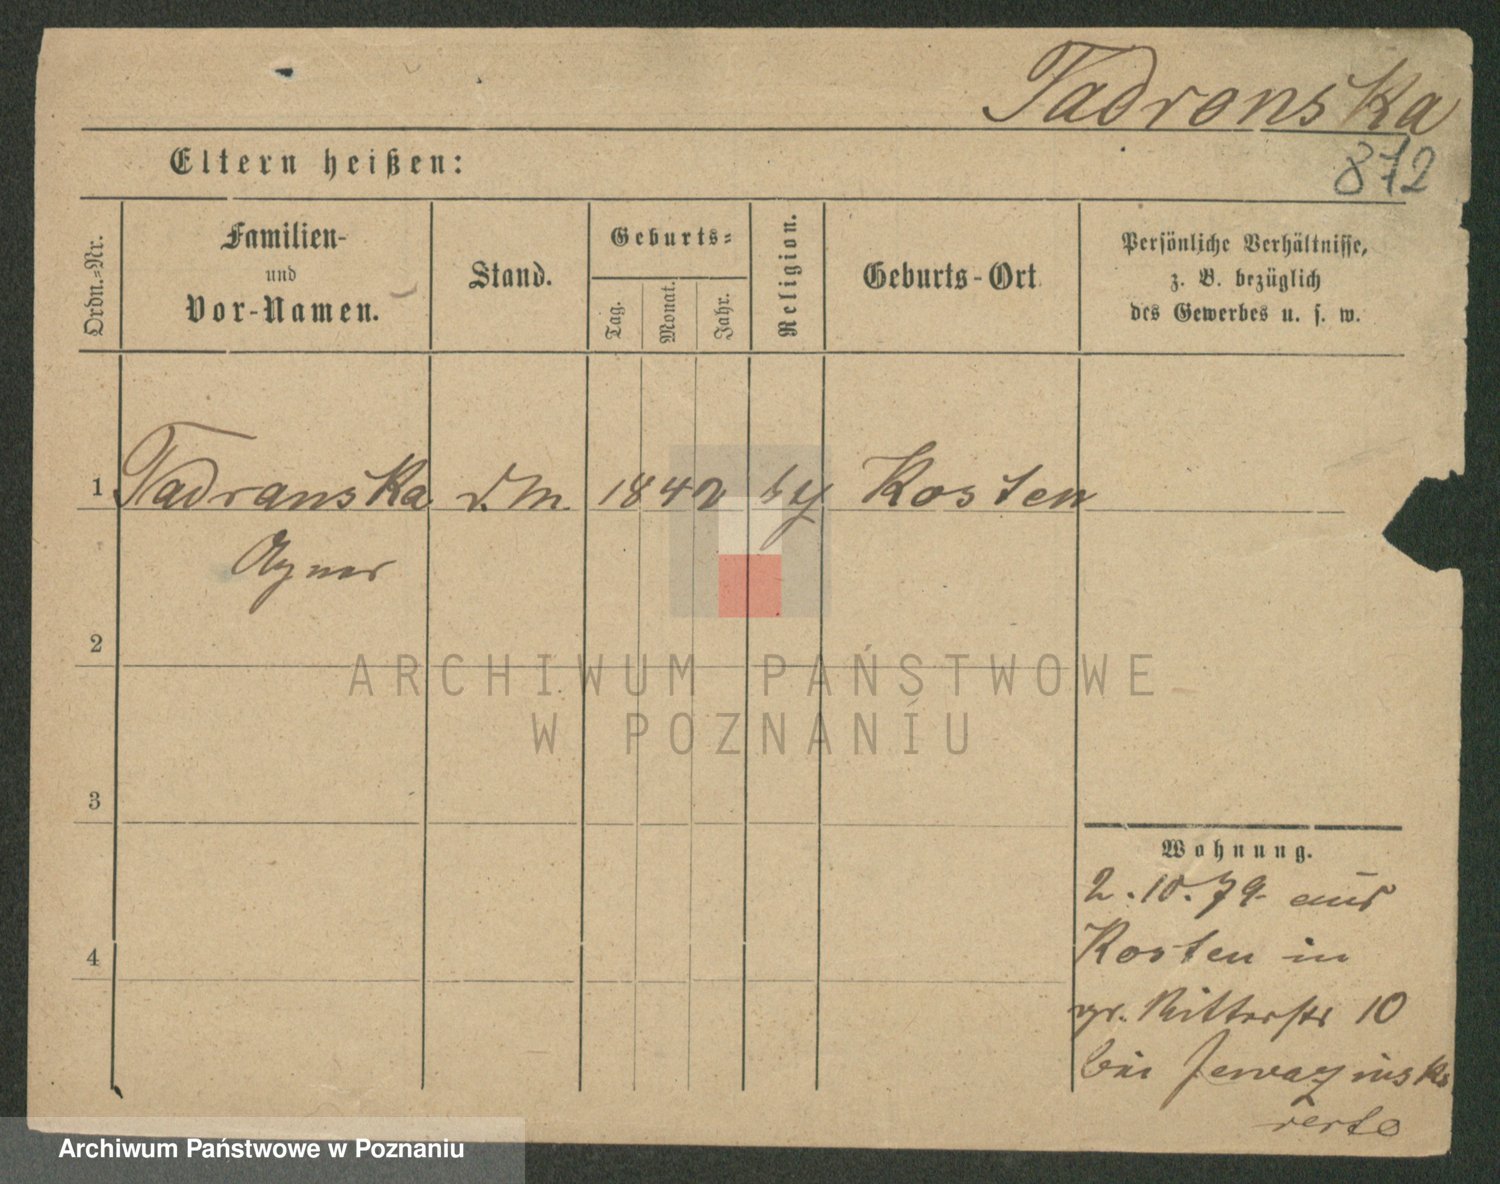 Tadronska
872
Eltern heißen:
Ordn.-Nr.
Familien-
und
Vor-Namen.
Stand.
Geburts-
Tag.
Monat.
Jahr.
Religion.
Geburts-Ort.
Persönliche Verhältnisse,
z. B. bezüglich
des Gewerbes u. s. w.
1 Tadranska d.M. 1842 Kosten
Agnes
2
3
4
Wohnung.
2.10.79. aus
Kosten in
gr. Ritterstr 10
bei
verte
ARCHIWUM PAŃSTWOWE
W POZNANIU
Archiwum Państwowe w Poznaniu